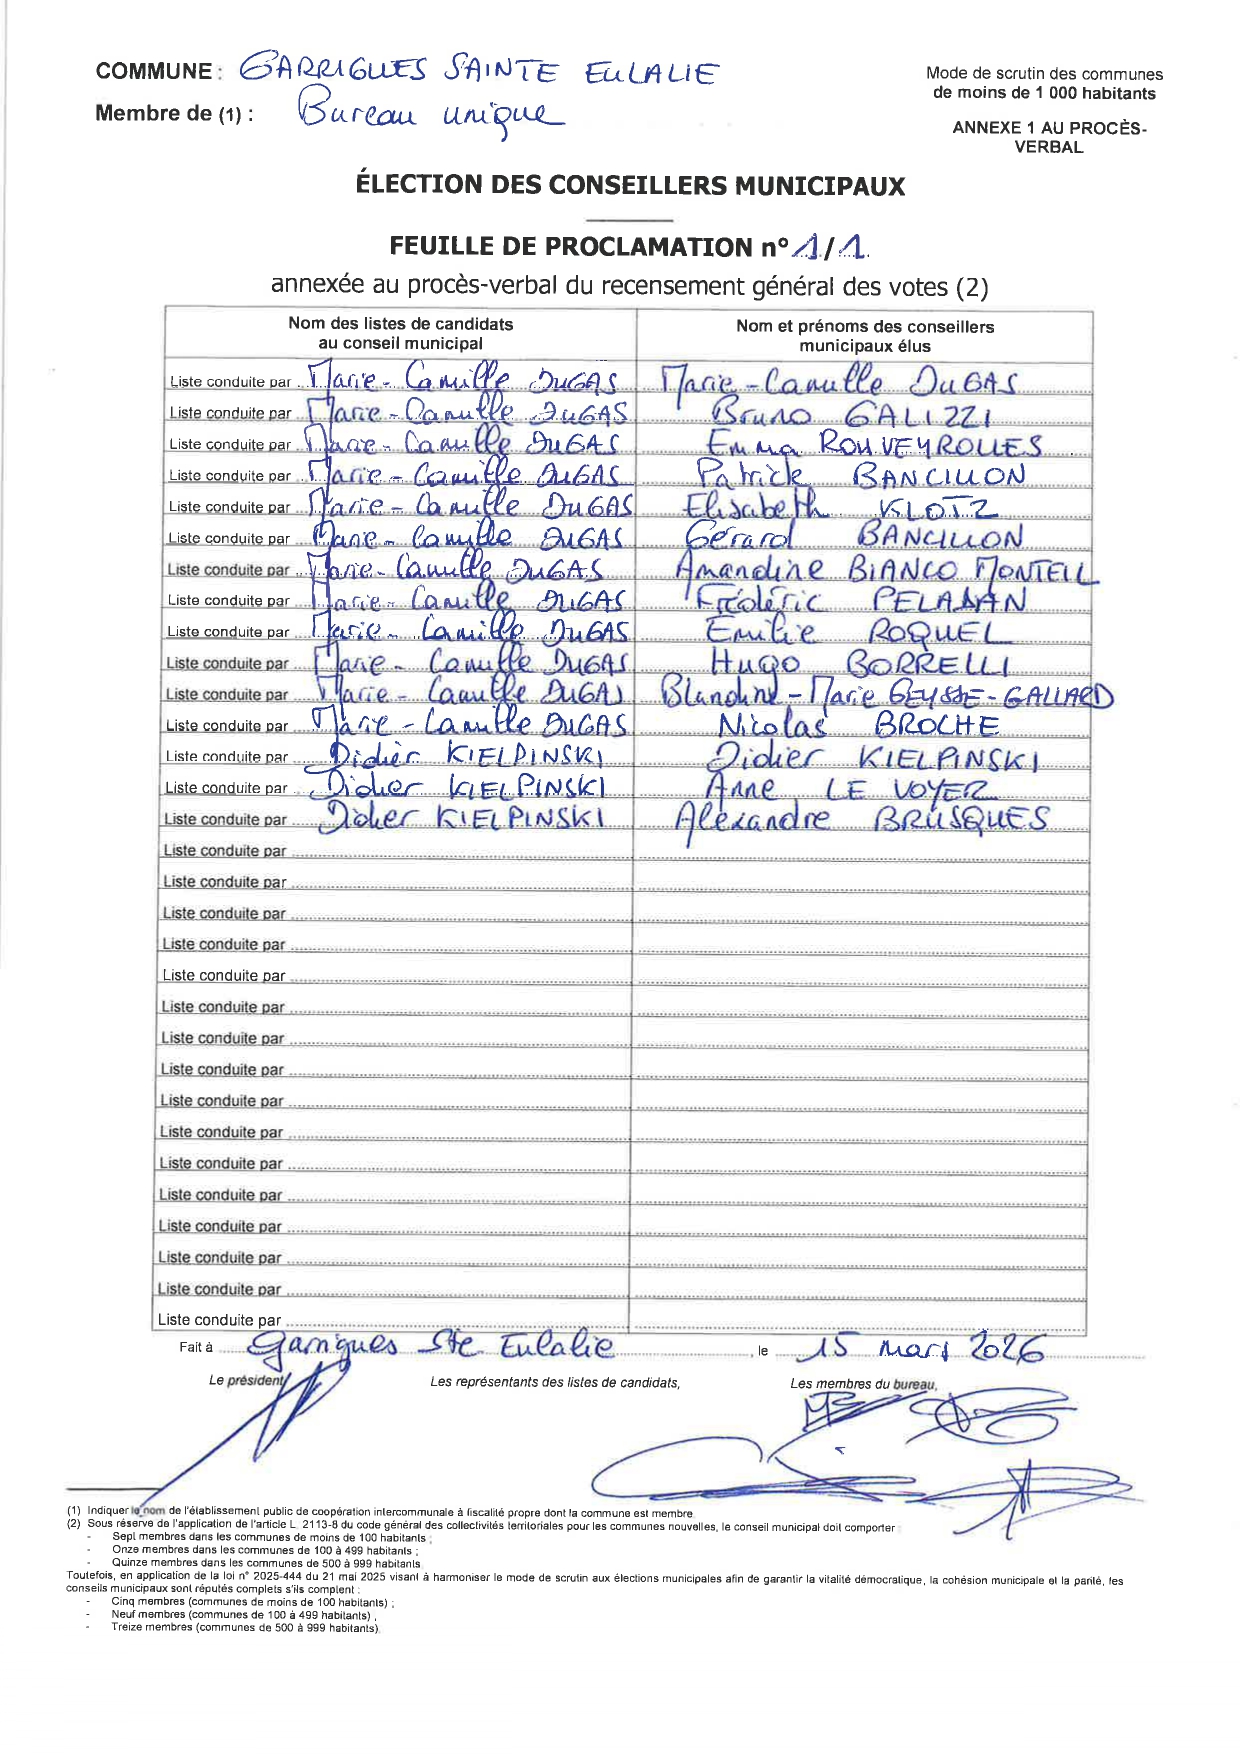 COMMUNE : GARRIGUES SAINTE EULALIE
Membre de (1) : Bureau unique
Mode de scrutin des communes
de moins de 1 000 habitants
ANNEXE 1 AU PROCÈS-
VERBAL
ÉLECTION DES CONSEILLERS MUNICIPAUX
FEUILLE DE PROCLAMATION n° 1/1
annexée au procès-verbal du recensement général des votes (2)
Nom des listes de candidats
au conseil municipal
Nom et prénoms des conseillers
municipaux élus
Liste conduite par Marie-Camille DUGAS Marie-Camille DUGAS
Liste conduite par Marie-Camille DUGAS Bruno GALIZZI
Liste conduite par Marie-Camille DUGAS Emma ROUVEYROLLES
Liste conduite par Marie-Camille DUGAS Patrick BANCILLON
Liste conduite par Marie-Camille DUGAS Elisabeth KLOTZ
Liste conduite par Marie-Camille DUGAS Gérard BANCILLON
Liste conduite par Marie-Camille DUGAS Amandine BIANCO MONTEIL
Liste conduite par Marie-Camille DUGAS Frédéric PELADAN
Liste conduite par Marie-Camille DUGAS Emilie ROQUEL
Liste conduite par Marie-Camille DUGAS Hugo BORRELLI
Liste conduite par Marie-Camille DUGAS Blandine-Marie GEYSSE-GALLARD
Liste conduite par Marie-Camille DUGAS Nicolas BROCHE
Liste conduite par Didier KIELPINSKI Didier KIELPINSKI
Liste conduite par Didier KIELPINSKI Anne LE VOYER
Liste conduite par Didier KIELPINSKI Aléxandre BRUSQUES
Liste conduite par
Liste conduite par
Liste conduite par
Liste conduite par
Liste conduite par
Liste conduite par
Liste conduite par
Liste conduite par
Liste conduite par
Liste conduite par
Liste conduite par
Liste conduite par
Liste conduite par
Liste conduite par
Liste conduite par
Liste conduite par
Fait à Garrigues Ste Eulalie, le 15 mars 2026
Le président Les représentants des listes de candidats, Les membres du bureau,
(1) Indiquer le nom de l'établissement public de coopération intercommunale à fiscalité propre dont la commune est membre.
(2) Sous réserve de l'application de l'article L. 2113-8 du code général des collectivités territoriales pour les communes nouvelles, le conseil municipal doit comporter :
- Sept membres dans les communes de moins de 100 habitants ;
- Onze membres dans les communes de 100 à 499 habitants ;
- Quinze membres dans les communes de 500 à 999 habitants.
Toutefois, en application de la loi n° 2025-444 du 21 mai 2025 visant à harmoniser le mode de scrutin aux élections municipales afin de garantir la vitalité démocratique, la cohésion municipale et la parité, les
conseils municipaux sont réputés complets s'ils comptent :
- Cinq membres (communes de moins de 100 habitants) ;
- Neuf membres (communes de 100 à 499 habitants) ;
- Treize membres (communes de 500 à 999 habitants).